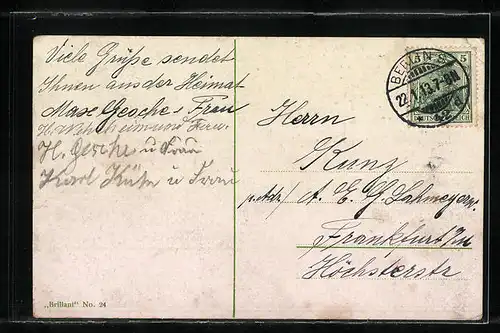 Viele Grüße sendet
Ihnen aus der Heimat
Max Gesche u Frau
H. Gesche u Frau
Karl Kühn u Frau
„Brillant“ No. 24
BERLIN S.
22.1.13.7-8N
5
Herrn
Kunz
p. Adr./ A. E. G. Lahmeyerw.
Frankfurt/M
Höchsterstr